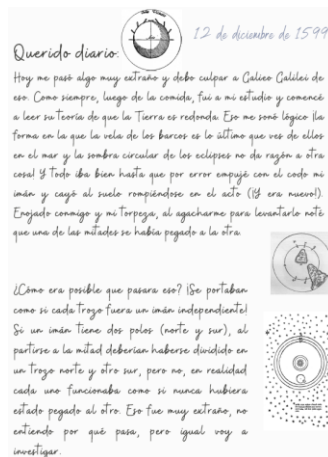 12 de diciembre de 1599
Querido diario:
Hoy me pasó algo muy extraño y debo culpar a Galileo Galilei de
eso. Como siempre, luego de la comida, fui a mi estudio y comencé
a leer su Teoría de que la Tierra es redonda. Eso me sonó lógico (la
forma en la que la vela de los barcos es lo último que ves de ellos
en el mar y la sombra circular de los eclipses no da razón a otra
cosa) Y todo iba bien hasta que por error empujé con el codo mi
imán y cayó al suelo rompiéndose en el acto (¡Y era nuevo!).
Enojado conmigo y mi torpeza, al agacharme para levantarlo noté
que una de las mitades se había pegado a la otra.
¿Cómo era posible que pasara eso? ¡Se portaban
como si cada trozo fuera un imán independiente!
Si un imán tiene dos polos (norte y sur), al
partirse a la mitad deberían haberse dividido en
un trozo norte y otro sur, pero no, en realidad
cada uno funcionaba como si nunca hubiera
estado pegado al otro. Eso fue muy extraño, no
entiendo por qué pasa, pero igual voy a
investigar.